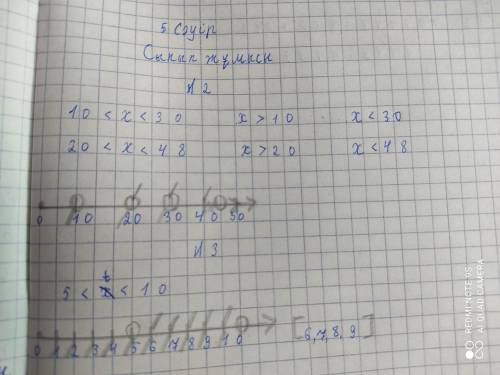 5 Сәуір
Сынып жұмысы
№2
10 < x < 30 x > 10 x < 30
20 < x < 48 x > 20 x < 48
0 10 20 30 40 50
№3
5 < t < 10
0 1 2 3 4 5 6 7 8 9 10 [6,7,8,9]
REDMI NOTE 9S
AI QUAD CAMERA